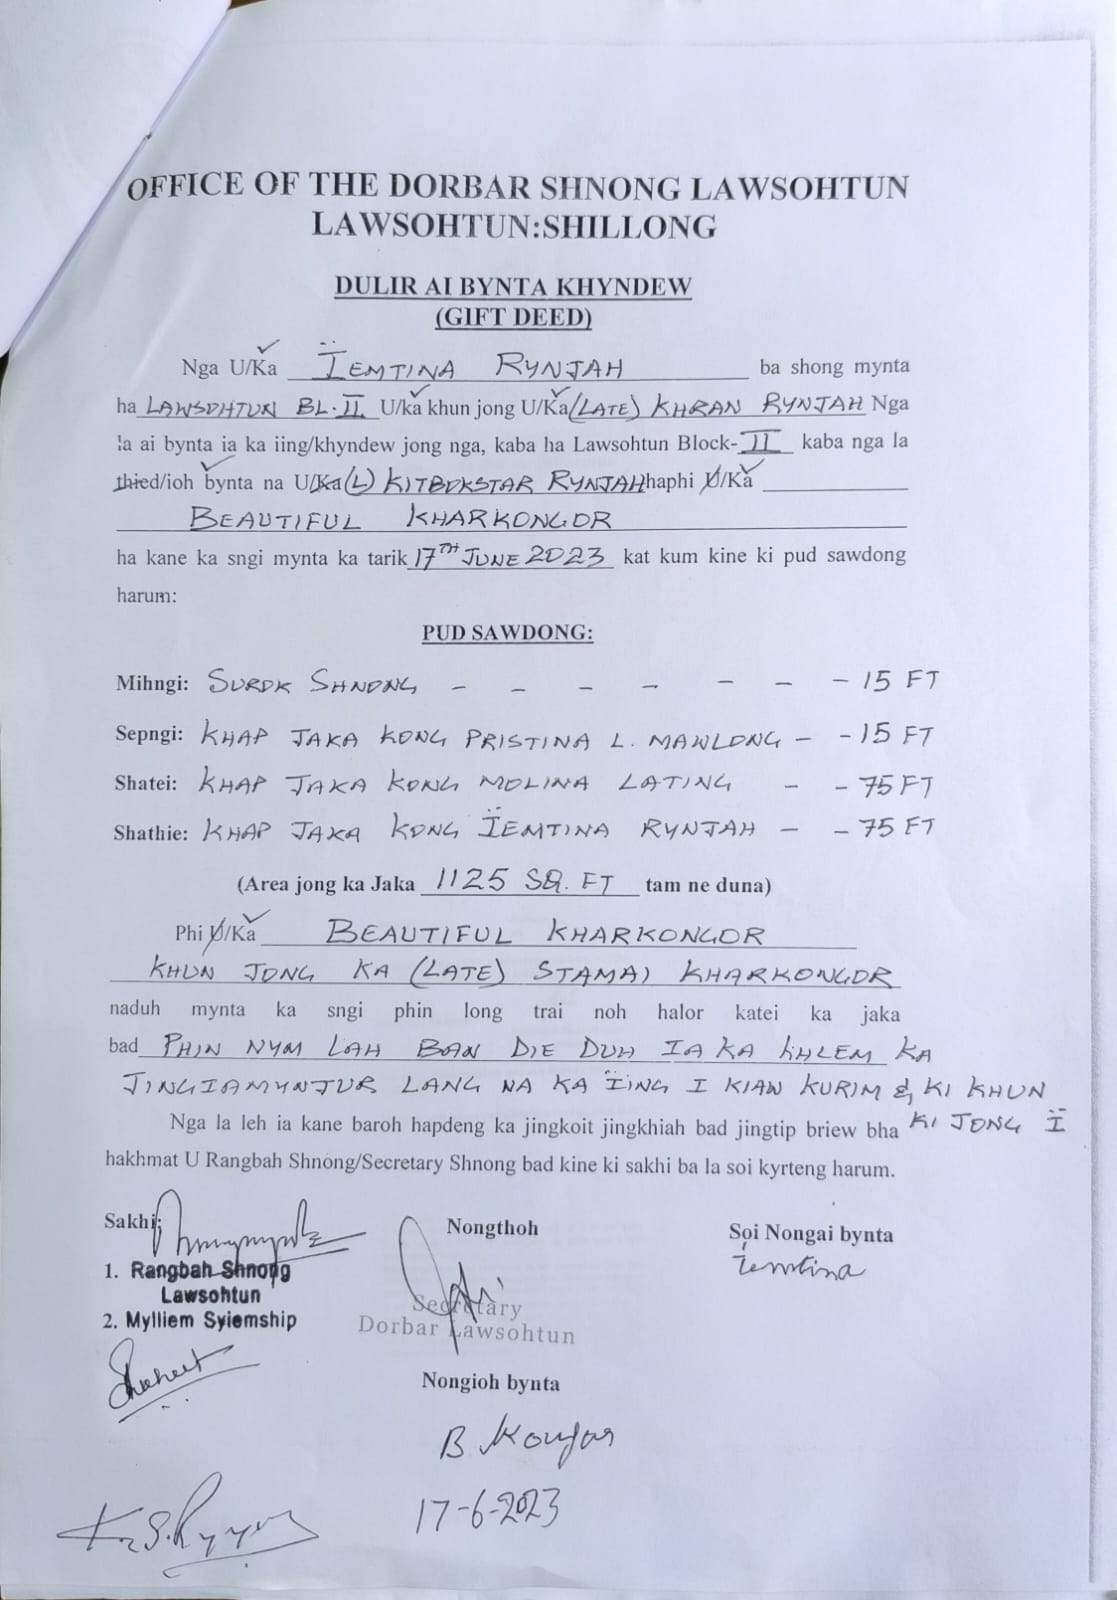 OFFICE OF THE DORBAR SHNONG LAWSOHTUN
LAWSOHTUN:SHILLONG
DULIR AI BYNTA KHYNDEW
(GIFT DEED)
Nga U/Ka ÏEMTINA RYNJAH ba shong mynta
ha LAWSOHTUN BL.II U/ka khun jong U/Ka (LATE) KHRAN RYNJAH Nga
la ai bynta ia ka iing/khyndew jong nga, kaba ha Lawsohtun Block-II kaba nga la
thied/ioh bynta na U/Ka (L) KITBOKSTAR RYNJAH haphi U/Ka
BEAUTIFUL KHARKONGOR
ha kane ka sngi mynta ka tarik 17TH JUNE 2023 kat kum kine ki pud sawdong
harum:
PUD SAWDONG:
Mihngi: SUROK SHNONG - - - - - - - 15 FT
Sepngi: KHAP JAKA KONG PRISTINA L. MAWLONG - - 15 FT
Shatei: KHAP JAKA KONG MOLINA LATING - - 75 FT
Shathie: KHAP JAKA KONG ÏEMTINA RYNJAH - - 75 FT
(Area jong ka Jaka 1125 SQ. FT tam ne duna)
Phi U/Ka BEAUTIFUL KHARKONGOR
KHUN JONG KA (LATE) STAMAI KHARKONGOR
naduh mynta ka sngi phin long trai noh halor katei ka jaka
bad PHIN NYM LAH BAN DIE DUH IA KA KHLEM KA
JINGIAMYNJUR LANG NA KA ÏING I KIAW KURIM & KI KHUN
KI JONG Ï
Nga la leh ia kane baroh hapdeng ka jingkoit jingkhiah bad jingtip briew bha
hakhmat U Rangbah Shnong/Secretary Shnong bad kine ki sakhi ba la soi kyrteng harum.
Sakhi: Nongthoh Soi Nongai bynta
Iemtina
1. Rangbah Shnong
Lawsohtun
2. Mylliem Syiemship
Secretary
Dorbar Lawsohtun
Nongioh bynta
B. Kongor
17-6-2023